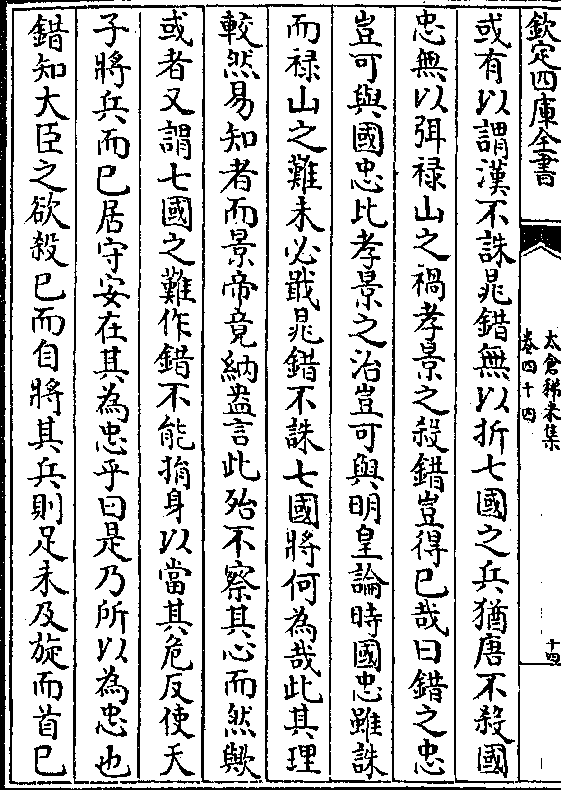 欽定四庫全書
太倉稊米集
卷四十四
十四
或有以謂漢不誅晁錯無以折七國之兵猶唐不殺國
忠無以弭禄山之禍孝景之殺錯豈得已哉曰錯之忠
豈可與國忠比孝景之治豈可與明皇論時國忠雖誅
而禄山之難未必戢晁錯不誅七國將何為哉此其理
較然易知者而景帝竟納盎言此殆不察其心而然歟
或者又謂七國之難作錯不能捐身以當其危反使天
子將兵而已居守安在其為忠乎曰是乃所以為忠也
錯知大臣之欲殺已而自將其兵則足未及旋而首已